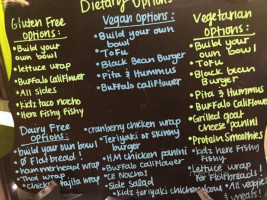 Dietary Options
Gluten Free
Options:
• Build your
own bowl
• lettuce wrap
• Buffalo Califlower
• All sides
• Kidz taco nacho
• Here Fishy Fishy
Vegan Options:
• Build your own
bowl
• Tofu
• Black Bean Burger
• Pita & Hummus
• Buffalo Califlower
Vegetarian
Options:
• Build your
own bowl
• Tofu
• Black bean
Burger
• Pita & Hummus
• Buffalo Califlower
• Grilled goat
cheese panini
• Protein Smoothies
• Kidz Here Fishy
Fishy
• Lettuce wrap
for Flatbreads!
• All veggies
& meats!
Dairy Free
options:
• build your own bowl
• Ø Flat bread!
• hammerhead wrap
• Thai wrap
• Chicken Fajita wrap
• cranberry chicken wrap
• Teriyaki or Skinny
burger
• H.M chicken panini
• Buffalo califlower
• CC Nachos
• Side Salad
• Kidz teriyaki chicken bowl